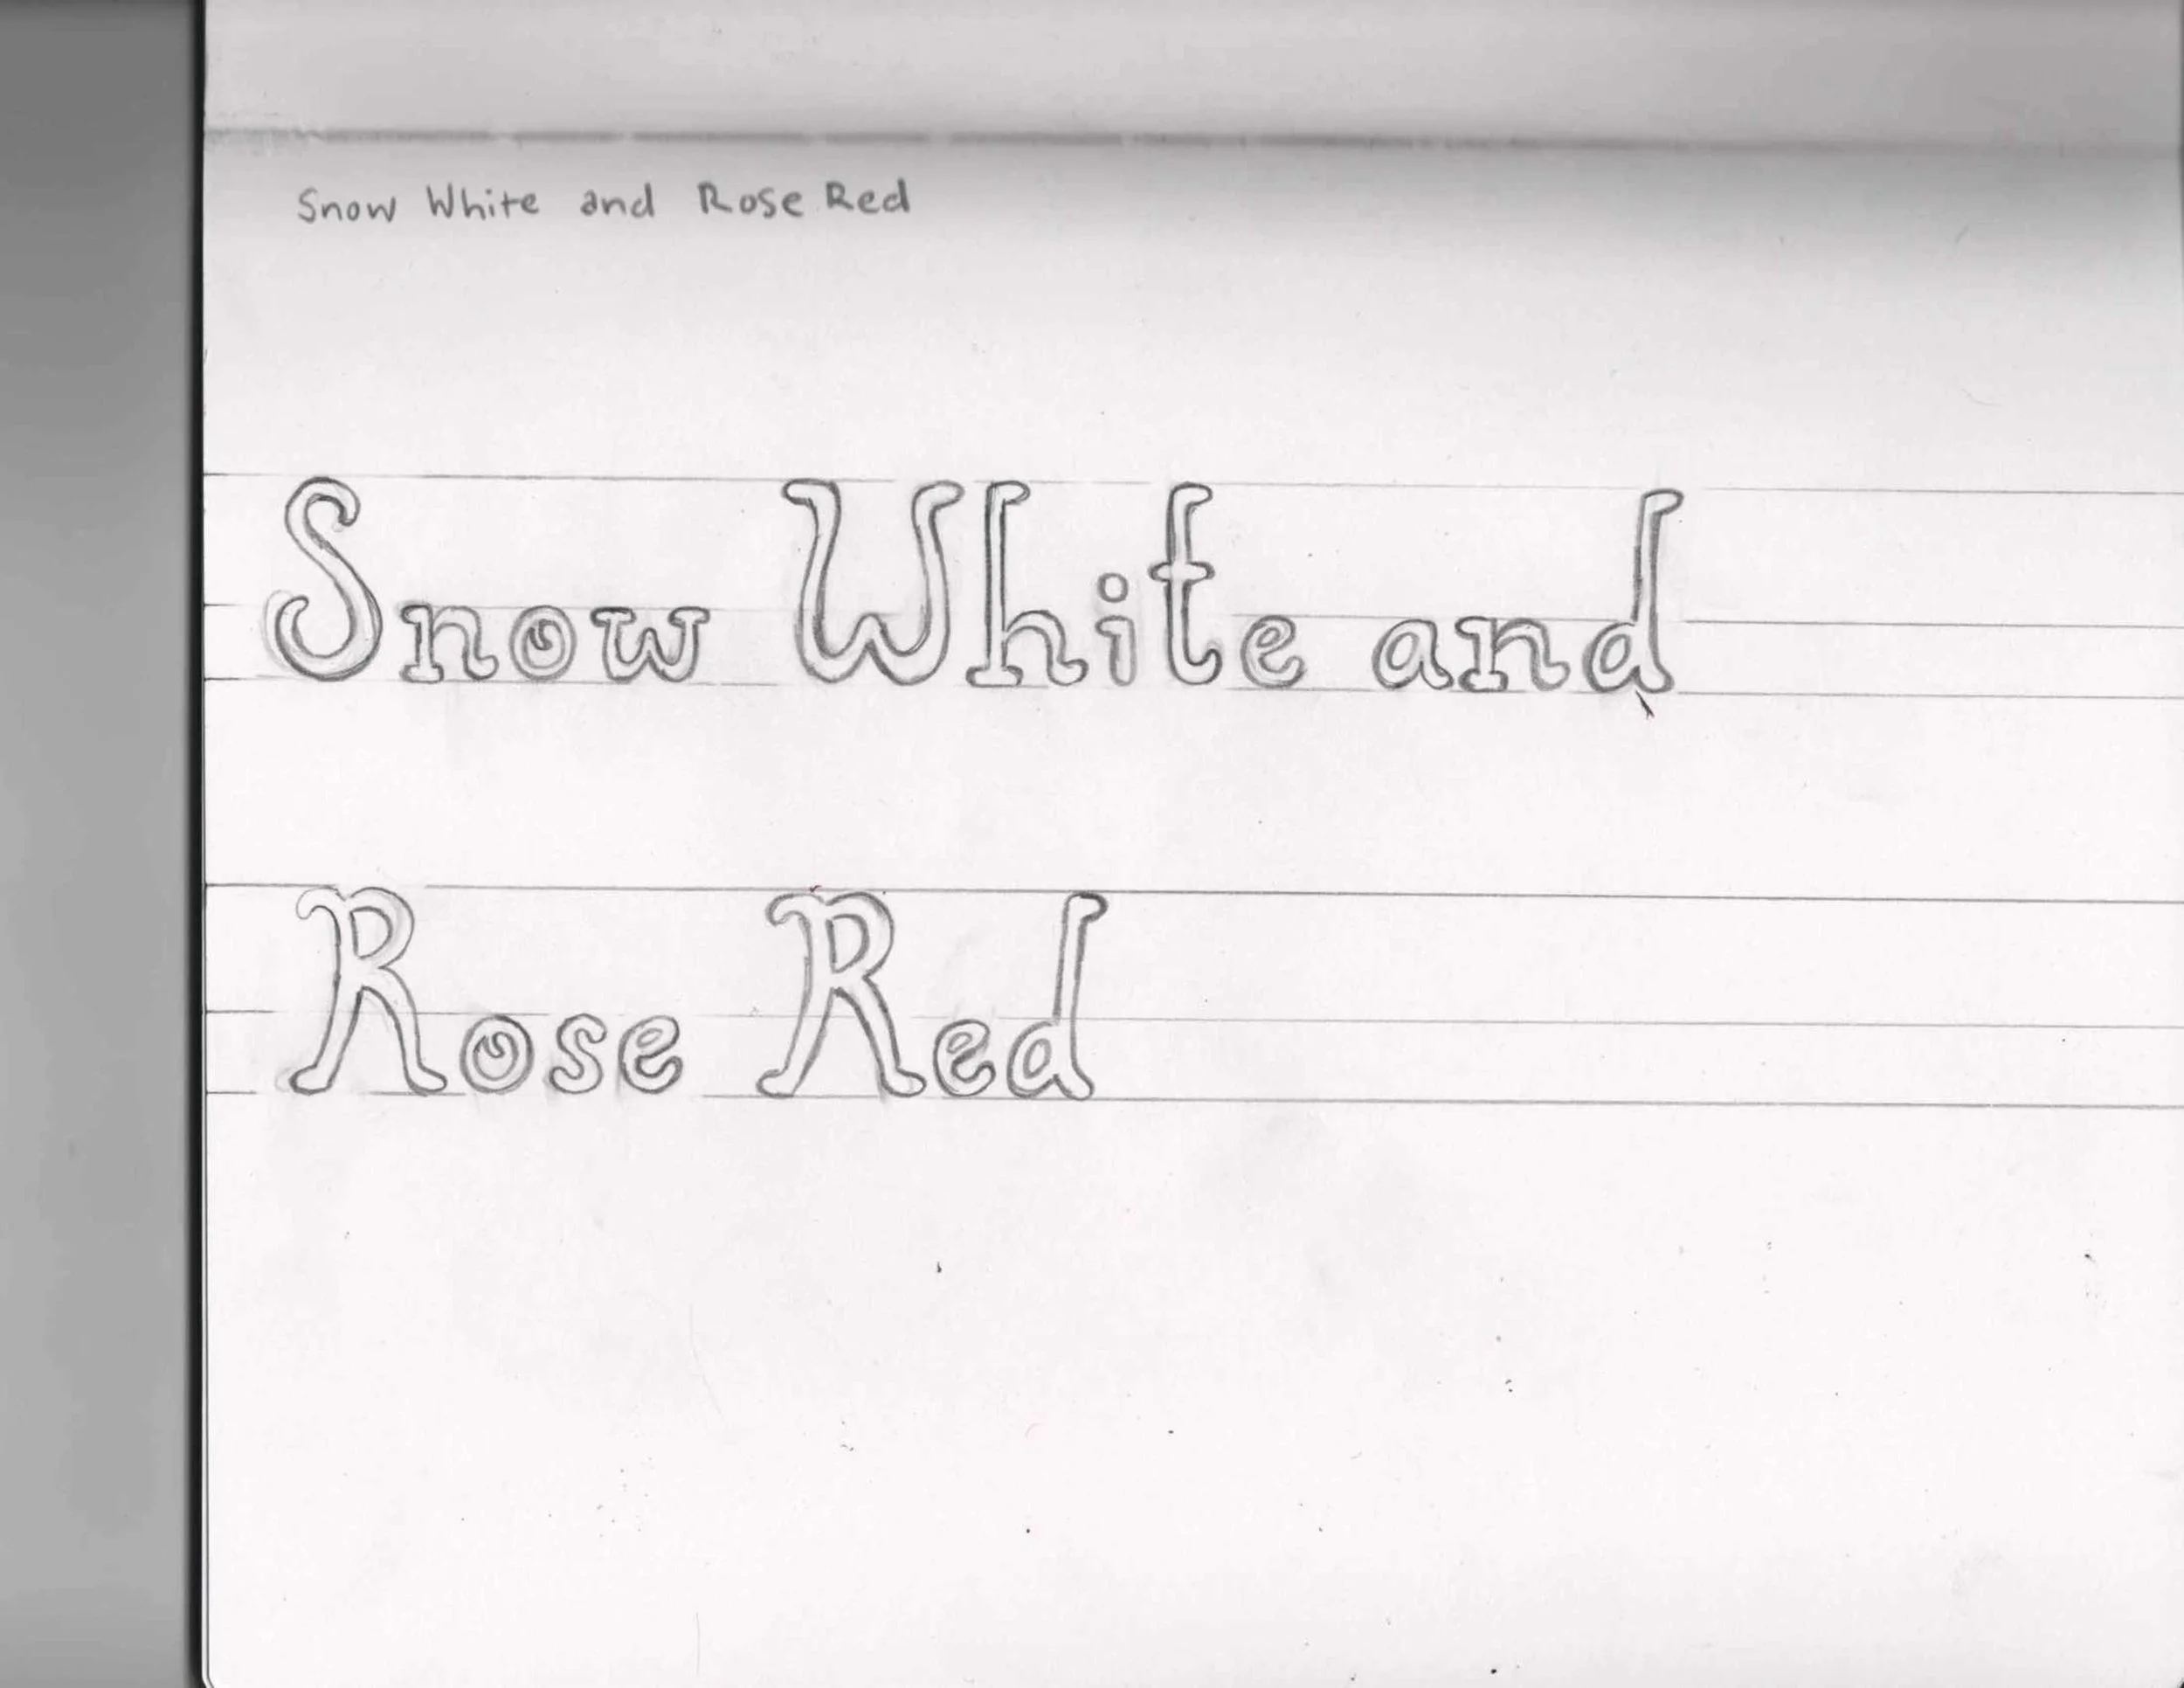 Snow White and Rose Red
Snow White and
Rose Red